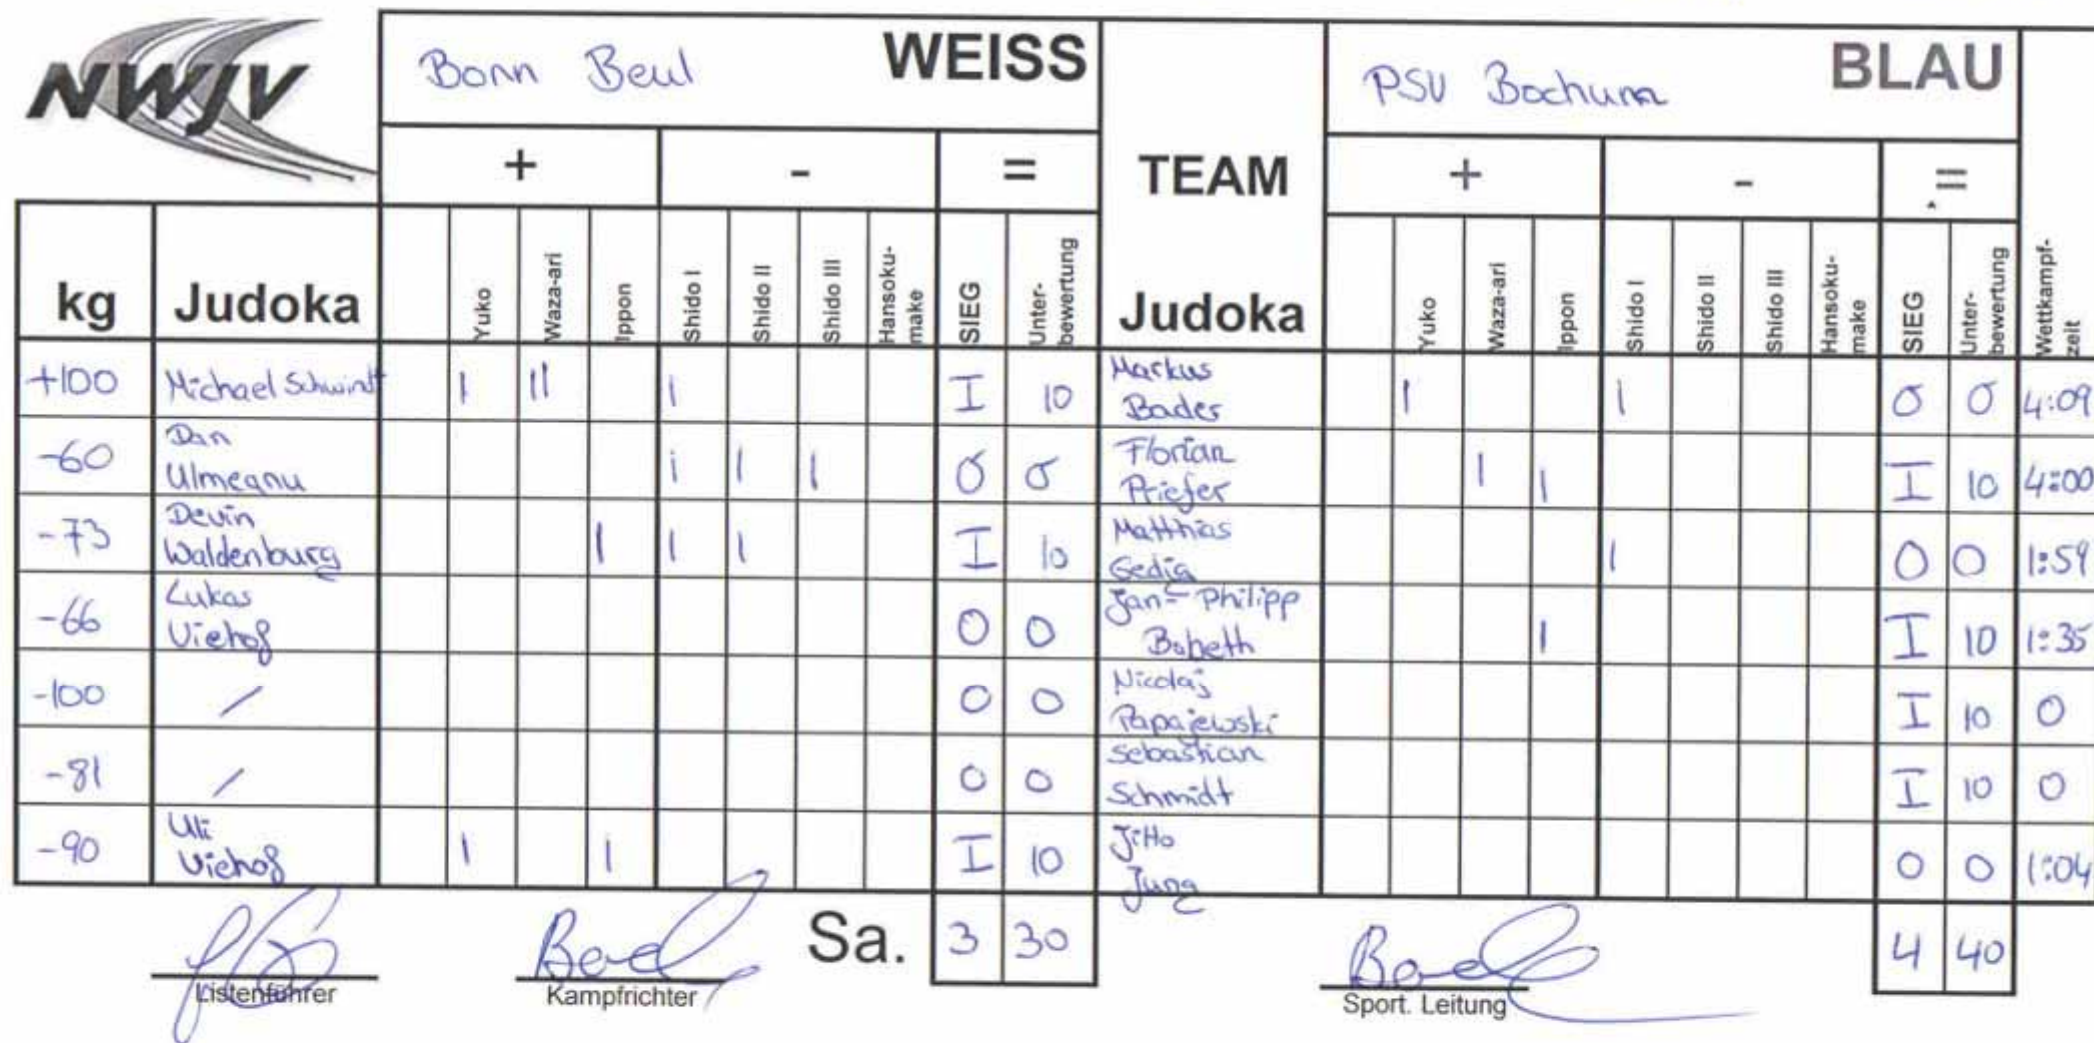 NWJV
Bonn Beul WEISS
PSV Bochum BLAU
+ - = TEAM + - =
kg Judoka Yuko Waza-ari Ippon Shido I Shido II Shido III Hansoku-make SIEG Unter-bewertung Judoka Yuko Waza-ari Ippon Shido I Shido II Shido III Hansoku-make SIEG Unter-bewertung Wettkampf-zeit
+100 Michael Schwindt I II I I 10 Markus Bader I I 0 0 4:09
-60 Dan Ulmeanu I I I 0 0 Florian Priefer I I I 10 4:00
-73 Devin Waldenburg I I I I 10 Matthias Gedig I 0 0 1:59
-66 Lukas Viehof 0 0 Jan-Philipp Bobeth I I 10 1:35
-100 / 0 0 Nicolaj Papajewski I 10 0
-81 / 0 0 Sebastian Schmidt I 10 0
-90 Uli Viehof I I I 10 Jitto Jung 0 0 1:04
Sa. 3 30 4 40
Listenführer Kampfrichter Sport. Leitung